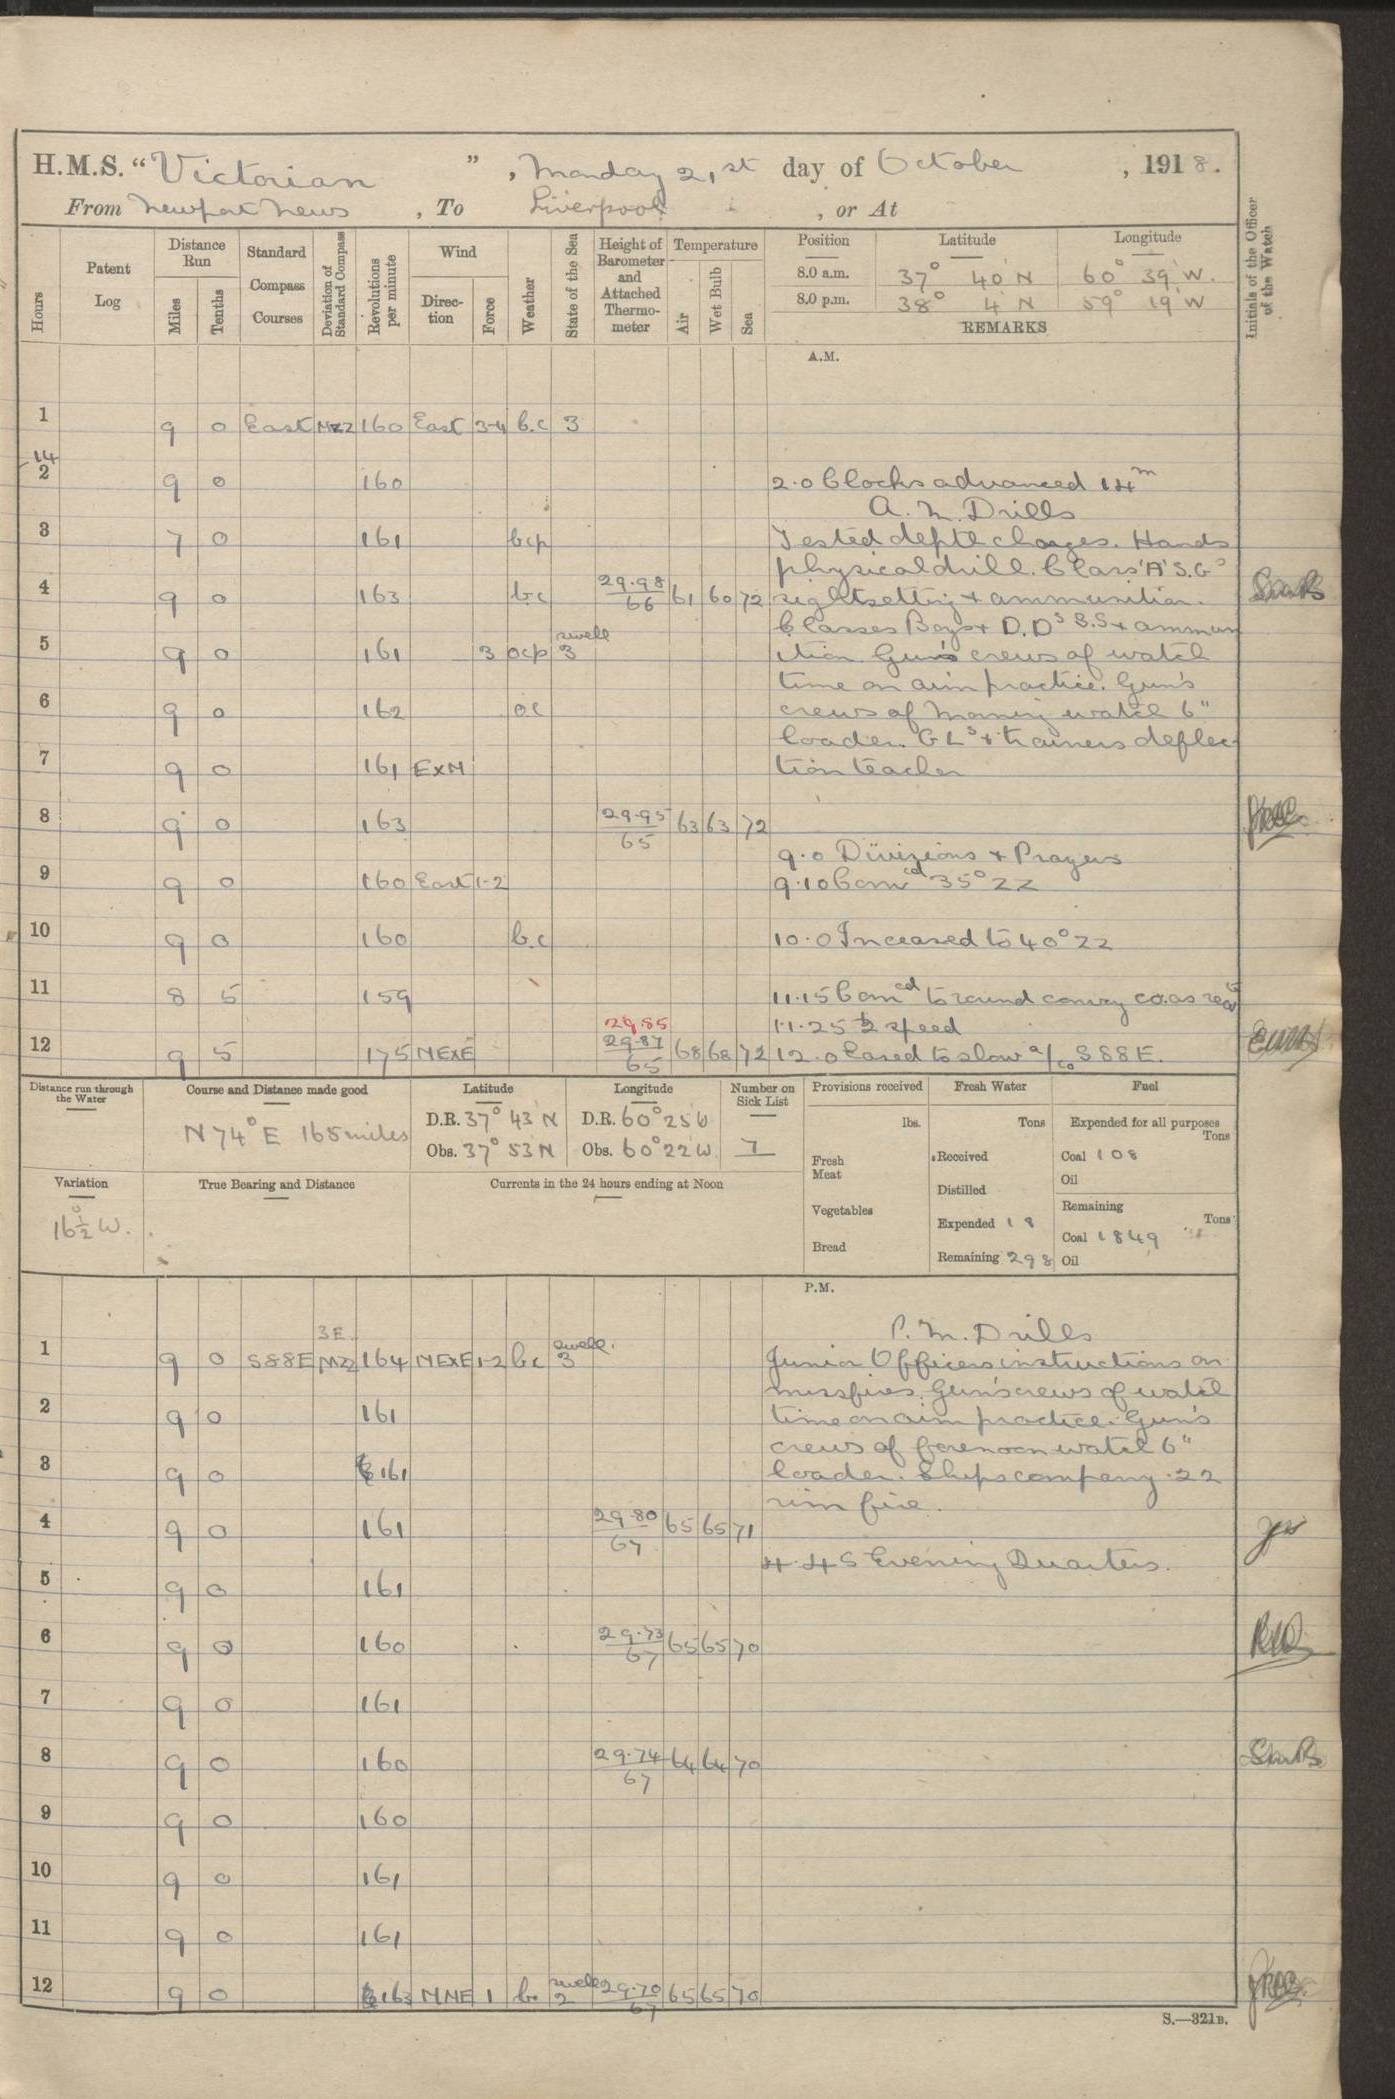 H.M.S. "Victorian", Monday 21st day of October, 1918.
From Newport News, To Liverpool, or At
Hours
Patent Log
Distance Run
Miles
Tenths
Standard Compass Courses
Deviation of Standard Compass
Revolutions per minute
Wind
Direction
Force
Weather
State of the Sea
Height of Barometer and Attached Thermometer
Temperature
Air
Wet Bulb
Sea
Position Latitude Longitude
8.0 a.m. 37° 40' N 60° 39' W.
8.0 p.m. 38° 4' N 59° 19' W
REMARKS
Initials of the Officer of the Watch
A.M.
1 9 0 East 160 East 3-4 b.c 3
14
2 9 0 160 2.0 Clocks advanced 14m
A.M. Drills
3 7 0 161 bcp Tested depth charges. Hands
physical drill. Class 'A' S.Gs
4 9 0 163 bc 29.98/66 61 60 72 sightsetting & ammunition.
Classes Boys & D.Ds S.S & ammun
5 9 0 161 3 ocp swell 3 ition Gun's crews of watch
time on aim practice. Gun's
6 9 0 162 oc crews of morning watch 6"
loader. GLs & trainers deflec
7 9 0 161 ExN tion teacher
8 9 0 163 29.95/65 63 63 72
9.0 Divisions & Prayers
9 9 0 160 East 1-2 9.10 Comcd 35° ZZ
10 9 0 160 b.c 10.0 Inceased to 40° ZZ
11 8 5 159 11.15 Comcd to round convoy co. as
29.85 11.25 ½ speed
12 9 5 175 NExE 29.87/65 68 68 72 12.0 Eased to slow a/co S88E.
Distance run through the Water
Course and Distance made good
N 74° E 165 miles
Latitude
D.R. 37° 43' N
Obs. 37° 53' N
Longitude
D.R. 60° 25' W
Obs. 60° 22' W.
Number on Sick List
7
Provisions received
lbs.
Fresh Meat
Vegetables
Bread
Fresh Water
Tons
Received
Distilled
Expended 18
Remaining 298
Fuel
Expended for all purposes
Tons
Coal 108
Oil
Remaining
Tons
Coal 1849
Oil
Variation
16½° W.
True Bearing and Distance
Currents in the 24 hours ending at Noon
P.M.
3E. P.M. Drills
1 9 0 S88E 164 NExE 1-2 bc swell. 3 Junior Officers instructions on
missfires. Gun's crews of watch
2 9 0 161 time on aim practice. Gun's
crews of forenoon watch 6"
3 9 0 161 loader. Ships company .22
rim fire.
4 9 0 161 29.80/67 65 65 71
4.45 Evening Quarters.
5 9 0 161
6 9 0 160 29.73/67 65 65 70
7 9 0 161
8 9 0 160 29.74/67 64 64 70
9 9 0 160
10 9 0 161
11 9 0 161
12 9 0 163 NNE 1 bc swell 2 29.70/67 65 65 70
S.—321B.